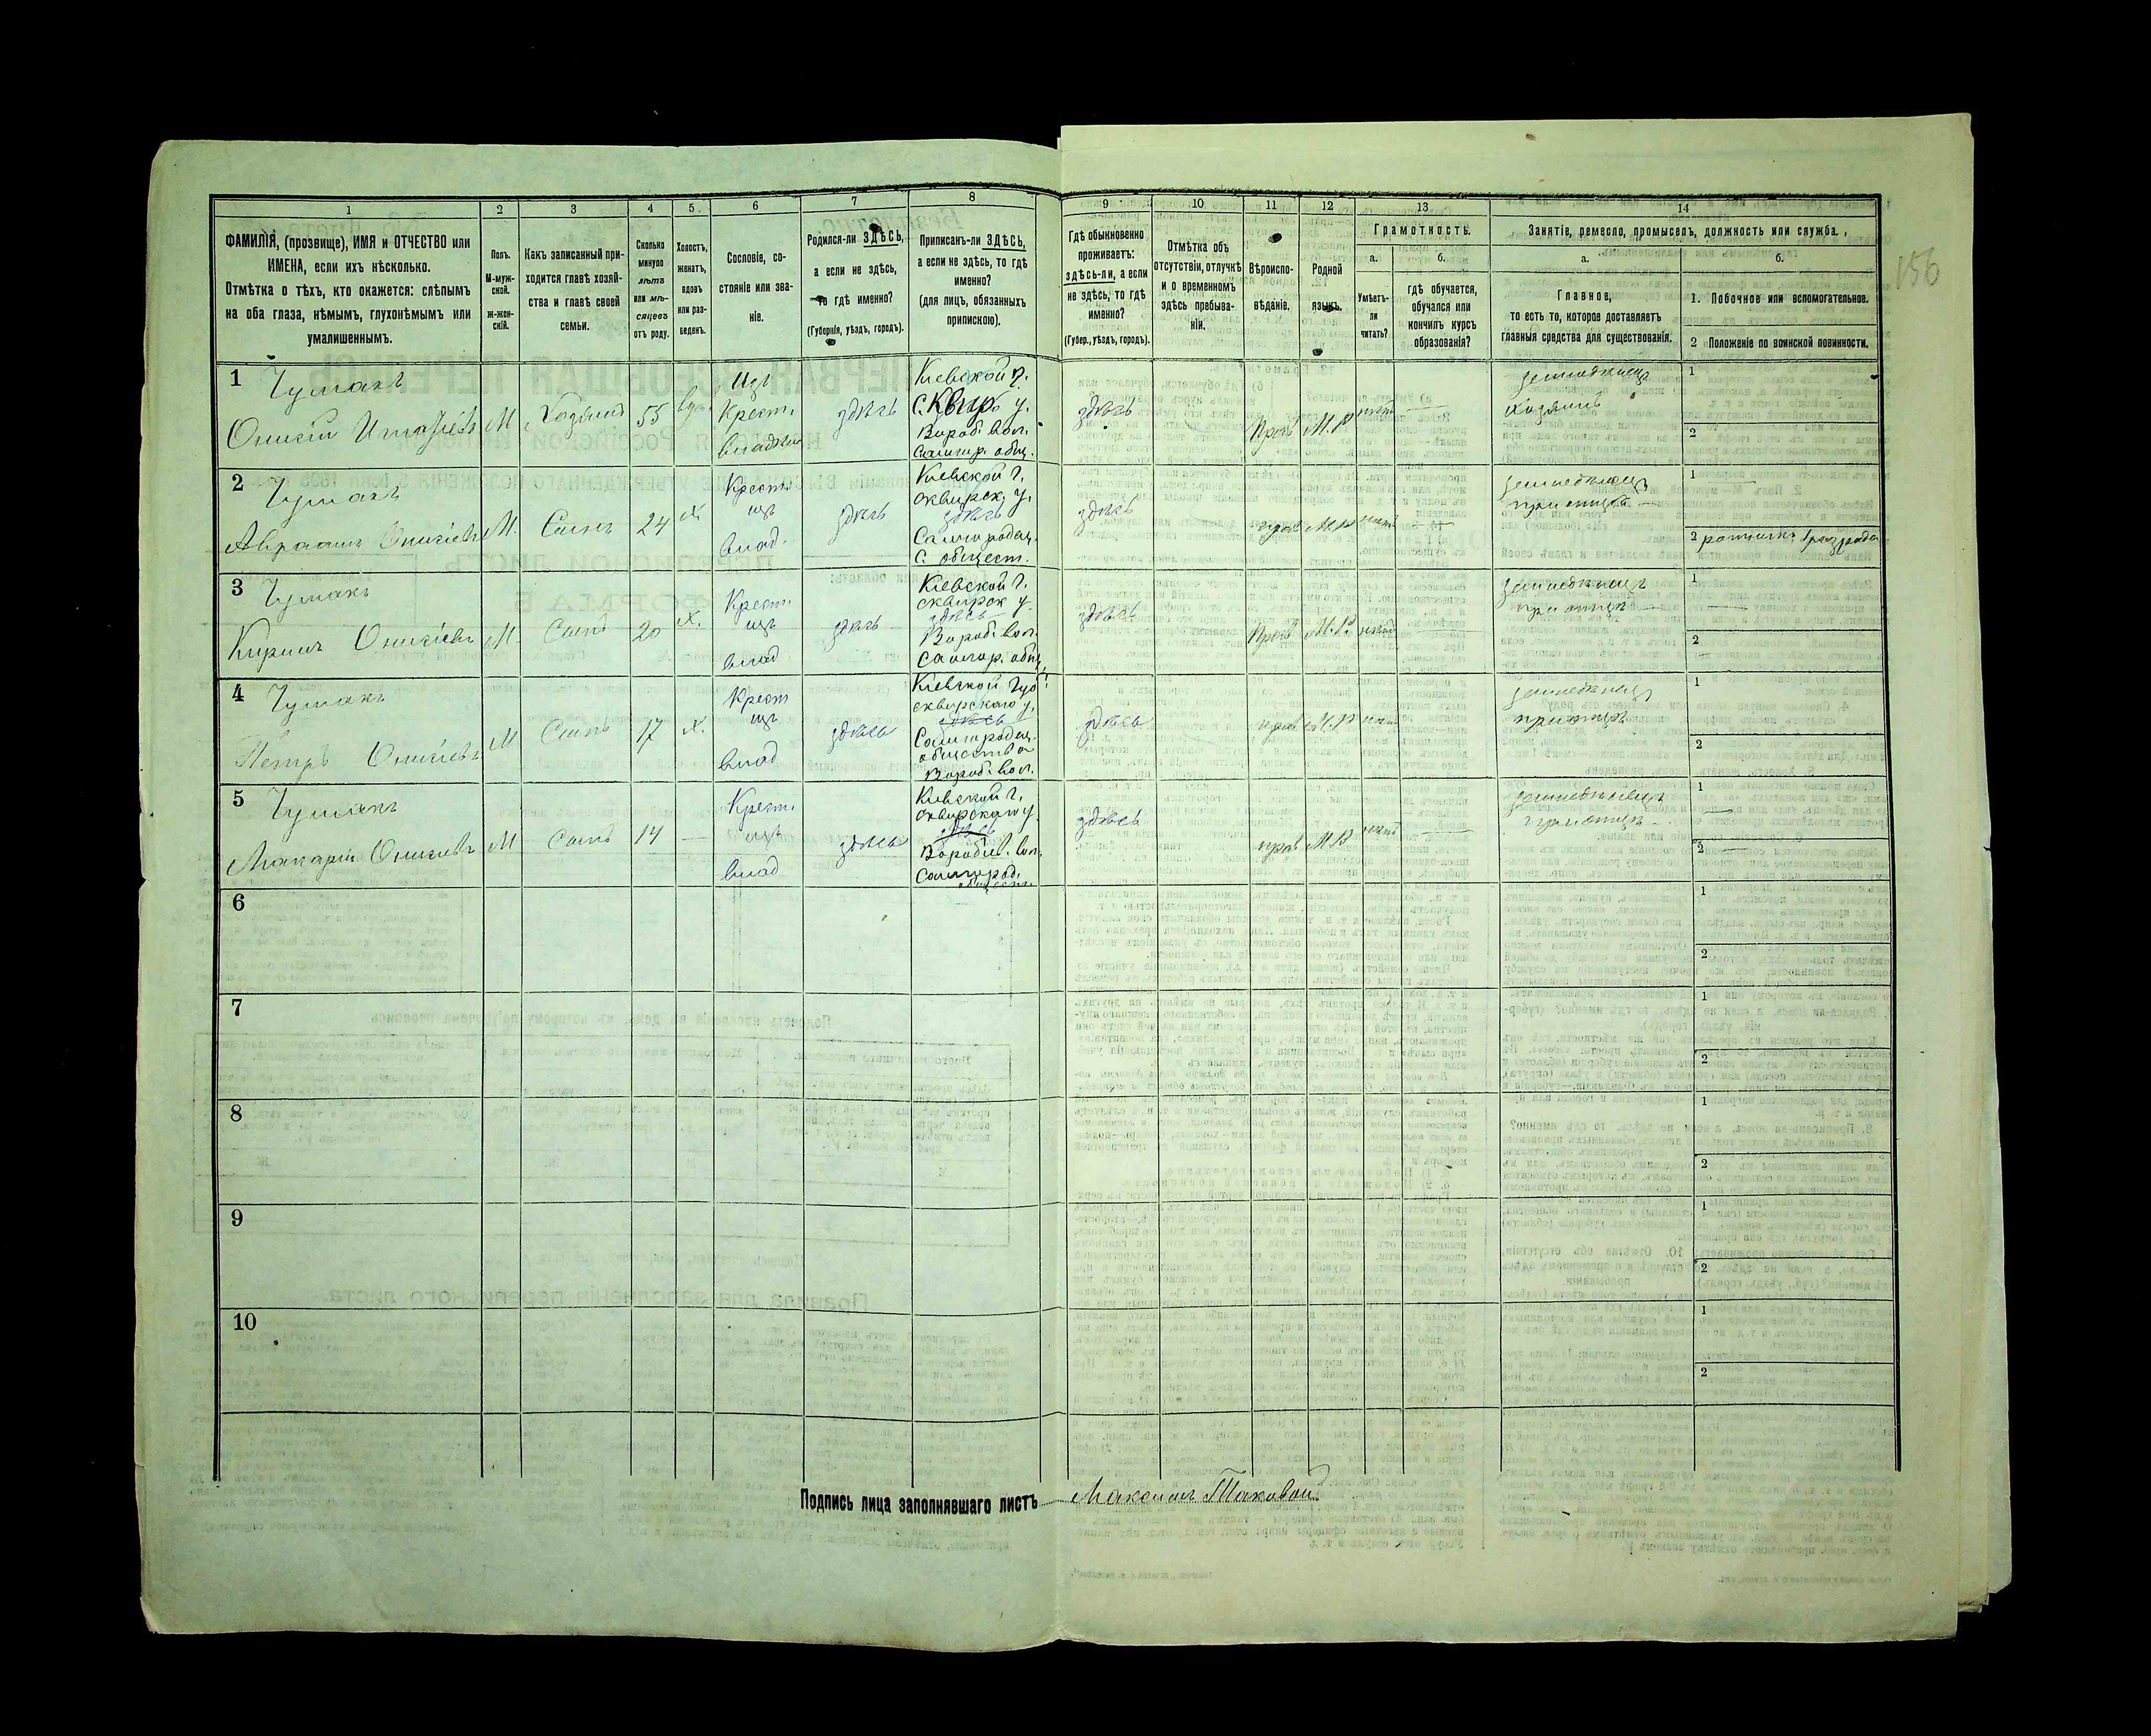 1 2 3 4 5. 6 7 8 9 10 11 12 13 14
ФАМИЛІЯ, (прозвище), ИМЯ и ОТЧЕСТВО или
ИМЕНА, если ихъ нѣсколько.
Отмѣтка о тѣхъ, кто окажется: слѣпымъ
на оба глаза, нѣмымъ, глухонѣмымъ или
умалишеннымъ.
Полъ.
М-муж-
ской.
ж-жен-
скій.
Какъ записанный при-
ходится главѣ хозяй-
ства и главѣ своей
семьи.
Сколько
минуло
лѣтъ
или мѣ-
сяцевъ
отъ роду.
Холостъ,
женатъ,
вдовъ
или раз-
веденъ.
Сословіе, со-
стояніе или зва-
ніе.
Родился-ли ЗДѢСЬ,
а если не здѣсь,
то гдѣ именно?
(Губернія, уѣздъ, городъ).
Приписанъ-ли ЗДѢСЬ,
а если не здѣсь, то гдѣ
именно?
(для лицъ, обязанныхъ
припискою).
Гдѣ обыкновенно
проживаетъ:
здѣсь-ли, а если
не здѣсь, то гдѣ
именно?
(Губер., уѣздъ, городъ).
Отмѣтка объ
отсутствіи, отлучкѣ
и о временномъ
здѣсь пребыва-
ніи.
Вѣроиспо-
вѣданіе.
Родной
языкъ.
Грамотность.
а.
Умѣетъ-
ли
читать?
б.
гдѣ обучается,
обучался или
кончилъ курсъ
образованія?
Занятіе, ремесло, промыселъ, должность или служба.
а.
Главное,
то есть то, которое доставляетъ
главныя средства для существованія.
б.
1. Побочное или вспомогательное.
2 Положеніе по воинской повинности.
156
1 Чумакъ
Онисій
М Хозяинъ 55 вдов
Изъ
Крест.
владѣл
здѣсь
Кіевской г.
Сквир. у.
Вороб. вол.
Самгор. общ.
здѣсь
Прав М.Р нѣтъ —
земледѣлецъ
хозяинъ
1
2
2 Чумакъ
Авраамъ Онисіевъ
М. Сынъ 24 х
Крест.
изъ
влад.
здѣсь
Кіевской г.
сквирск. у.
здѣсь
Самгородец.
с. общест.
здѣсь
прав М.Р нѣтъ —
земледѣлецъ
при отцѣ —
1 —
2 ратникъ 1 разряда
3 Чумакъ
Кирилъ Онисіевъ
М. Сынъ 20 х.
Крест.
изъ
влад
здѣсь
Кіевской г.
сквирск у.
здѣсь
Вороб. вол.
Самгор. общ.
здѣсь
Прав М.Р. нѣтъ —
земледѣлецъ
при отцѣ —
1 —
2
4 Чумакъ
Петръ Онисіевъ
М Сынъ 17 х.
Крест
изъ
влад
здѣсь
Кіевской Губ.
сквирскаго у.
здѣсь
Самгородец.
общества
Вороб. вол.
здѣсь
прав М.Р нѣтъ
земледѣлецъ
при отцѣ
1
2
5 Чумакъ
Макарій Онисіевъ
М Сынъ 14 —
Крест.
изъ
влад
здѣсь
Кіевской г.
сквирскаго у.
здѣсь
Воробіев. вол.
Самгород.
общест.
здѣсь
прав М.Р нѣтъ —
земледѣлецъ
при отцѣ —
1 —
2 —
6
1
2
7
1
2
8
1
2
9
1
2
10
1
2
Подпись лица заполнявшаго листъ Максимъ